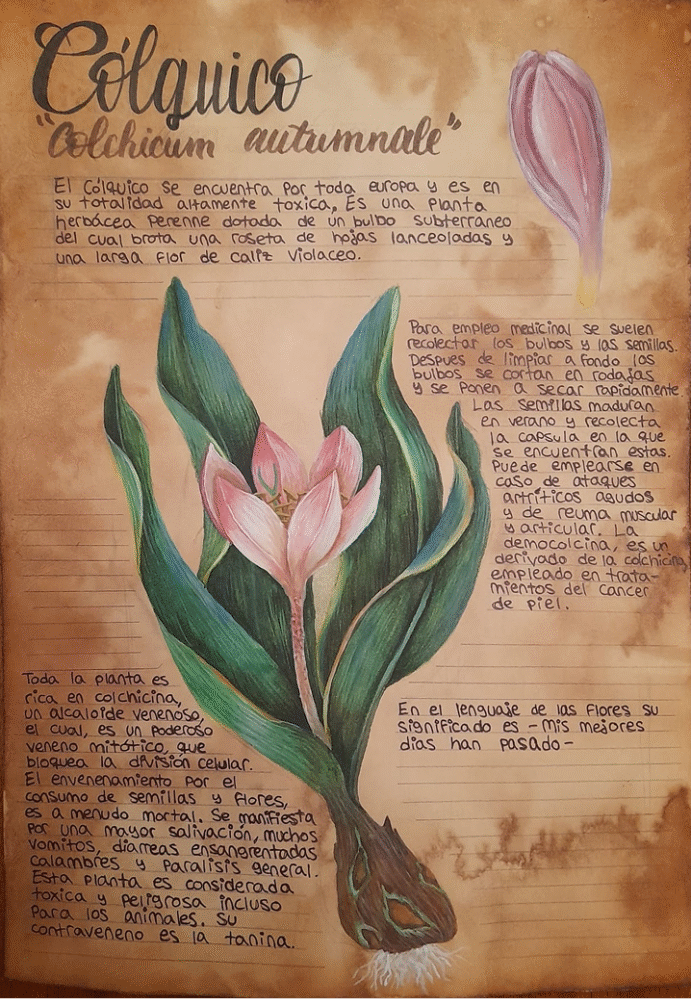 Cólquico
"Colchicum autumnale"
El cólquico se encuentra por toda europa y es en
su totalidad altamente toxica, Es una planta
herbácea perenne dotada de un bulbo subterraneo
del cual brota una roseta de hojas lanceoladas y
una larga flor de caliz violaceo.
Para empleo medicinal se suelen
recolectar los bulbos y las semillas.
Despues de limpiar a fondo los
bulbos se cortan en rodajas
y se ponen a secar rapidamente.
Las semillas maduran
en verano y recolecta
la capsula en la que
se encuentran estas.
Puede emplearse en
caso de ataques
artríticos agudos
y de reuma muscular
y articular. La
democolcina, es un
derivado de la colchicina,
empleado en trata-
mientos del cancer
de piel.
Toda la planta es
rica en colchicina,
un alcaloide venenoso,
el cual, es un poderoso
veneno mitótico, que
bloquea la división celular.
El envenenamiento por el
consumo de semillas y flores,
es a menudo mortal. Se manifiesta
por una mayor salivación, muchos
vomitos, diarreas ensangrentadas
calambres y paralisis general.
Esta planta es considerada
toxica y peligrosa incluso
para los animales. Su
contraveneno es la tanina.
En el lenguaje de las flores su
significado es - Mis mejores
días han pasado -